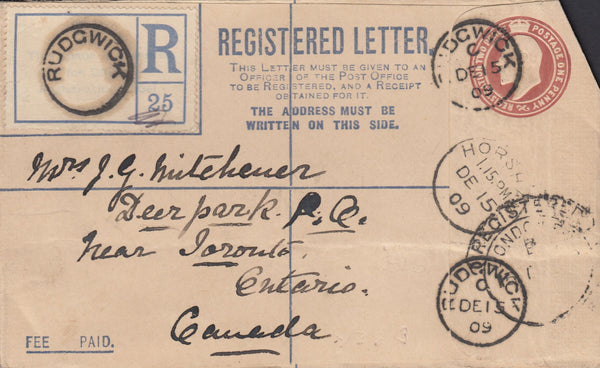 RUDGWICK
R
25
REGISTERED LETTER.
THIS LETTER MUST BE GIVEN TO AN
OFFICER OF THE POST OFFICE
TO BE REGISTERED, AND A RECEIPT
OBTAINED FOR IT.
THE ADDRESS MUST BE
WRITTEN ON THIS SIDE.
RUDGWICK
C
DE 15
09
POSTAGE ONE PENNY
HORSH
1.15 PM
DE 15
09
REGISTE
ONDON
RUDGWICK
C
DE 15
09
Mrs J. G. Mitchener
Deer park. P.O.
Near Toronto.
Ontario.
Canada
FEE PAID.